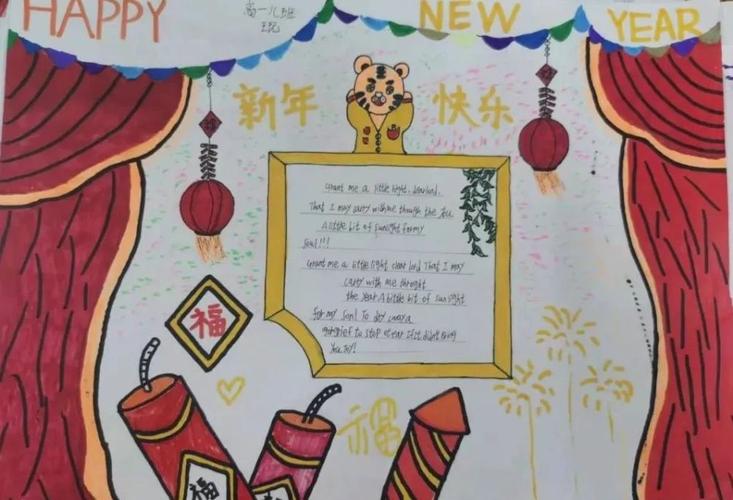 HAPPY NEW YEAR
高一八班
新年 快乐
Grant me a little light, dear lord,
That I may carry with me through the
A little bit of sunlight for my
Soul!!!
Grant me a little light dear lord That I may
carry with me throght
the year A little bit of sunlight
for my Soul To dry
grief to stop
You Joy!
福
福
福